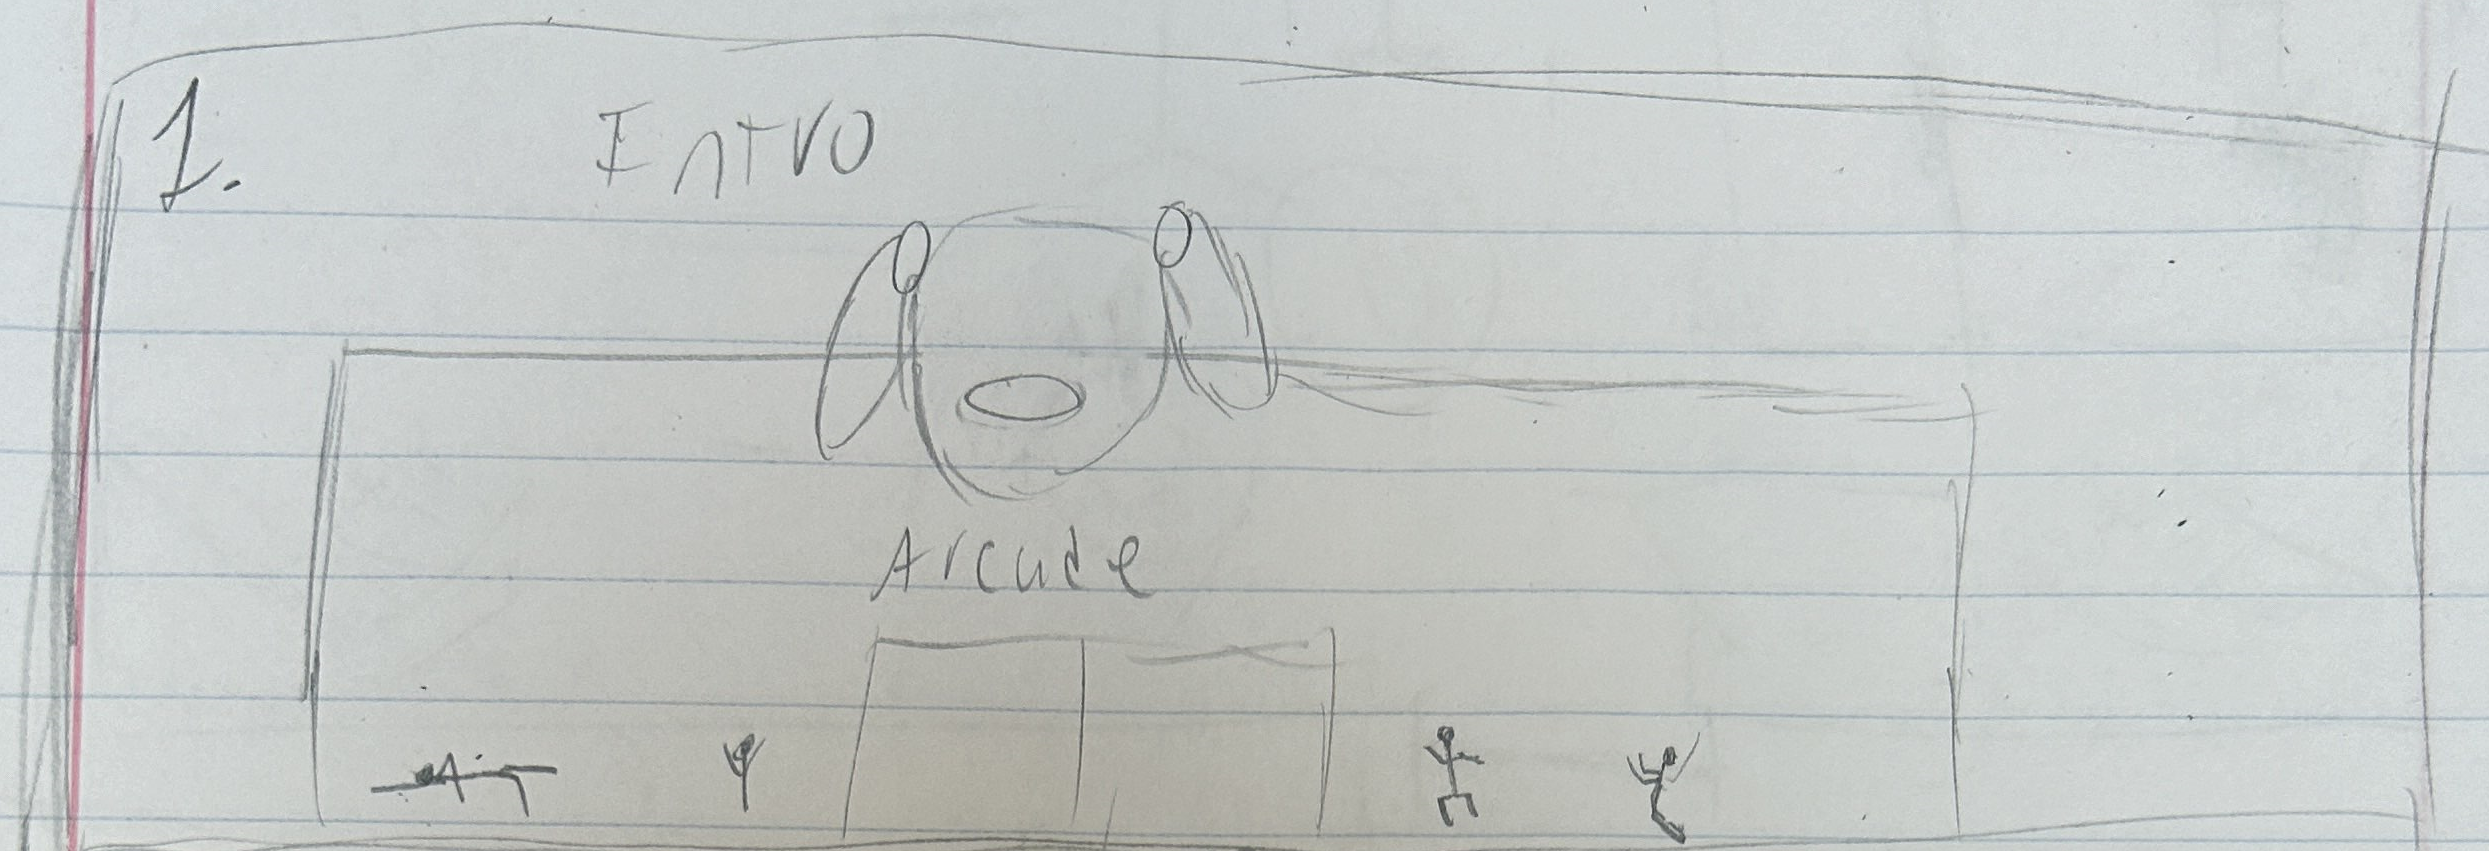 1. Intro
Arcade